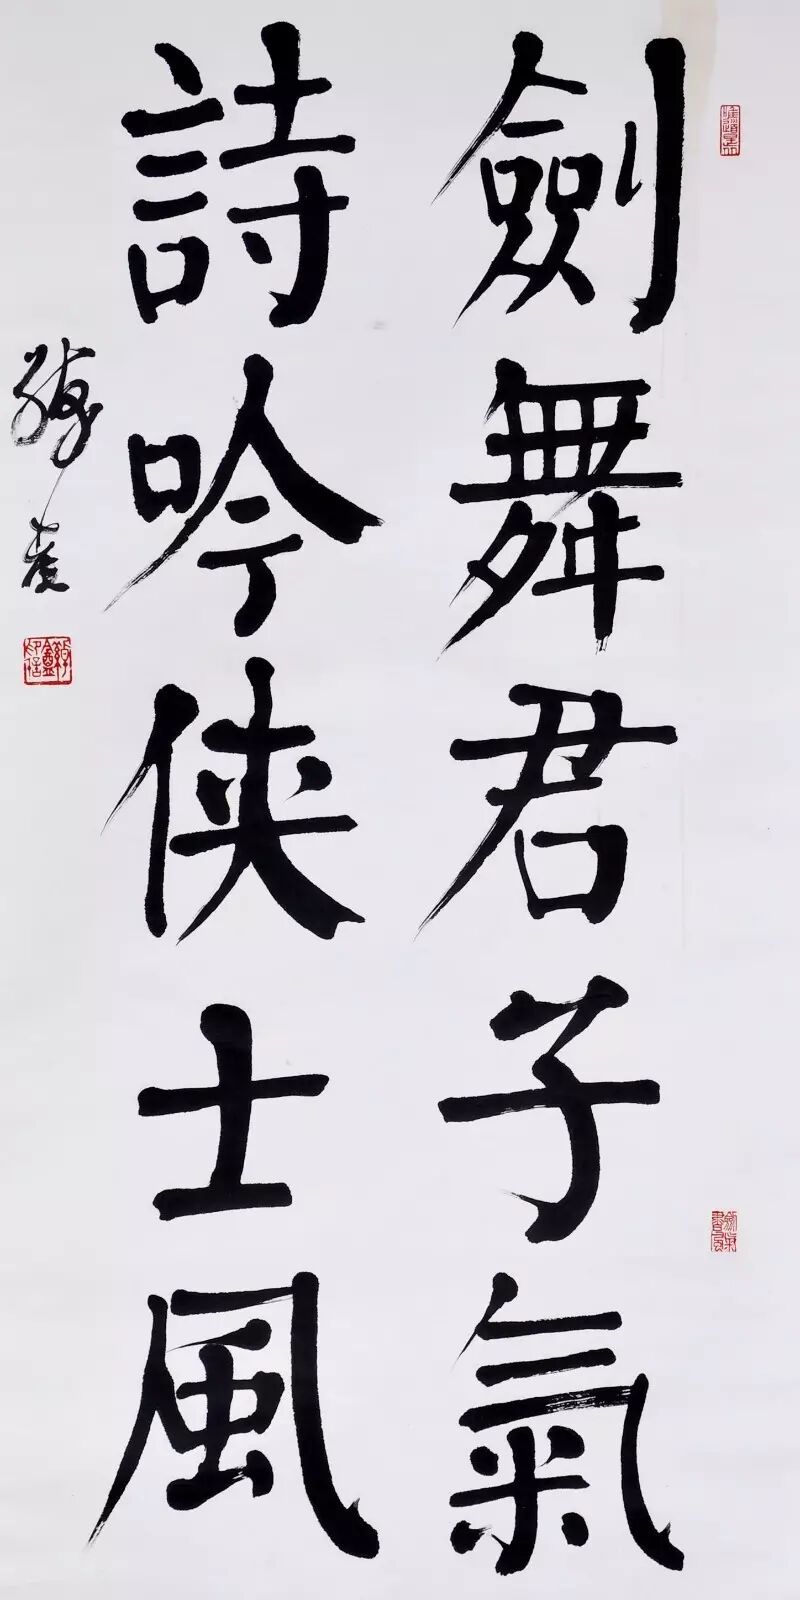 劍舞君子氣
詩吟俠士風